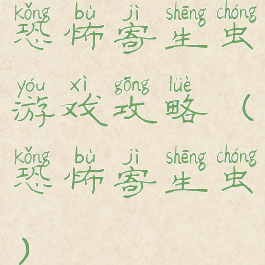 kǒng bù jì shēng chóng
恐怖寄生虫
yóu xì gōng lüè
游戏攻略（
kǒng bù jì shēng chóng
恐怖寄生虫
）